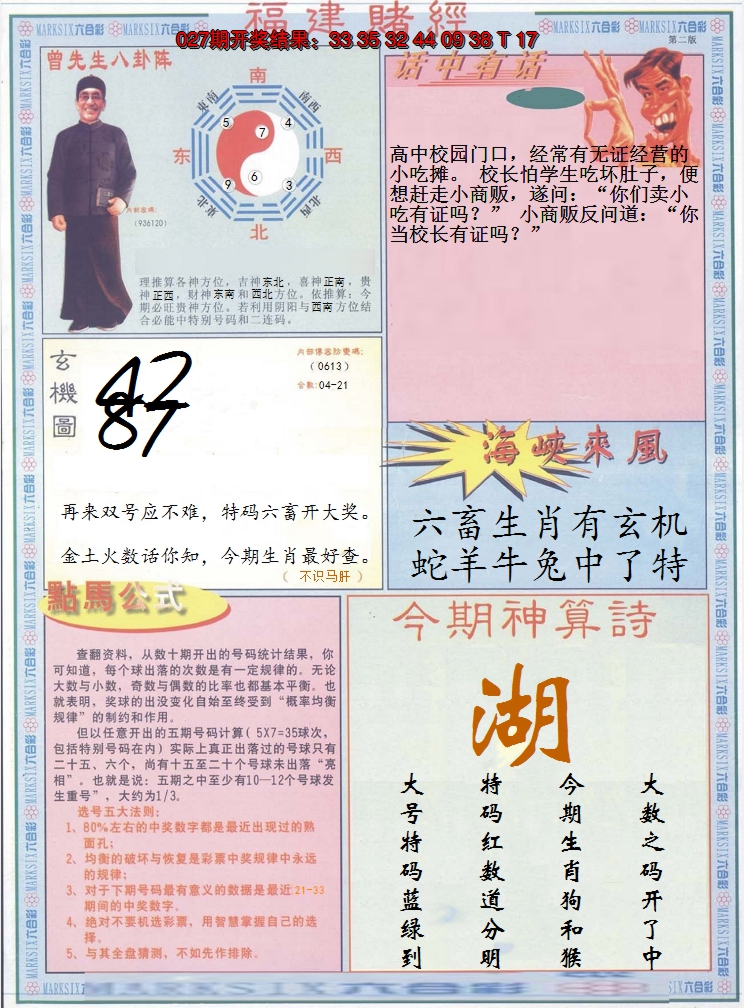 福建賭經
027期开奖结果：33 35 32 44 09 38 T 17
MARKSIX六合彩 MARKSIX六合彩 MARKSIX六合彩
第二版
曾先生八卦阵
南
东南 西南
5 4
7
东 西
9 6 3
东北 西北
北
内部密码：
(936120)
理推算各神方位，吉神东北，喜神正南，贵
神正西，财神东南和西北方位。依推算：今
期必旺贵神方位。若利用阴阳与西南方位结
合必能中特别号码和二连码。
话中有话
高中校园门口，经常有无证经营的
小吃摊。 校长怕学生吃坏肚子，便
想赶走小商贩，遂问：“你们卖小
吃有证吗？” 小商贩反问道：“你
当校长有证吗？”
玄機圖
内部傳密防覺碼：
(0613)
合数：04-21
42
87
再来双号应不难，特码六畜开大奖。
金土火数话你知，今期生肖最好查。
（ 不识马肝 ）
海峽來風
六畜生肖有玄机
蛇羊牛兔中了特
點馬公式
查翻资料，从数十期开出的号码统计结果，你
可知道，每个球出落的次数是有一定规律的。无论
大数与小数，奇数与偶数的比率也都基本平衡。也
就表明，奖球的出没变化自始至终受到“概率均衡
规律”的制约和作用。
但以任意开出的五期号码计算( 5X7=35球次，
包括特别号码在内) 实际上真正出落过的号球只有
二十五、六个，尚有十五至二十个号球未出落“亮
相”。也就是说：五期之中至少有10—12个号球发
生重号”，大约为1/3。
选号五大法则：
1、80%左右的中奖数字都是最近出现过的熟
面孔；
2、均衡的破坏与恢复是彩票中奖规律中永远
的规律；
3、对于下期号码最有意义的数据是最近21-33
期间的中奖数字。
4、绝对不要机选彩票，用智慧掌握自己的选
择。
5、与其全盘猜测，不如先作排除。
今期神算詩
湖
大数之码开了中
今期生肖狗和猴
特码红数道分明
大号特码蓝绿到